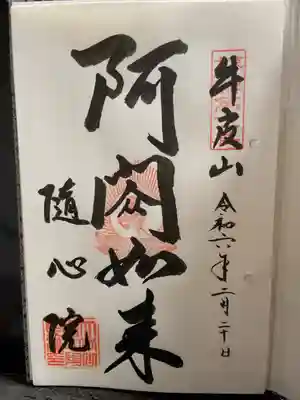 牛皮山
令和六年二月二十日
阿閦如来
隨心院